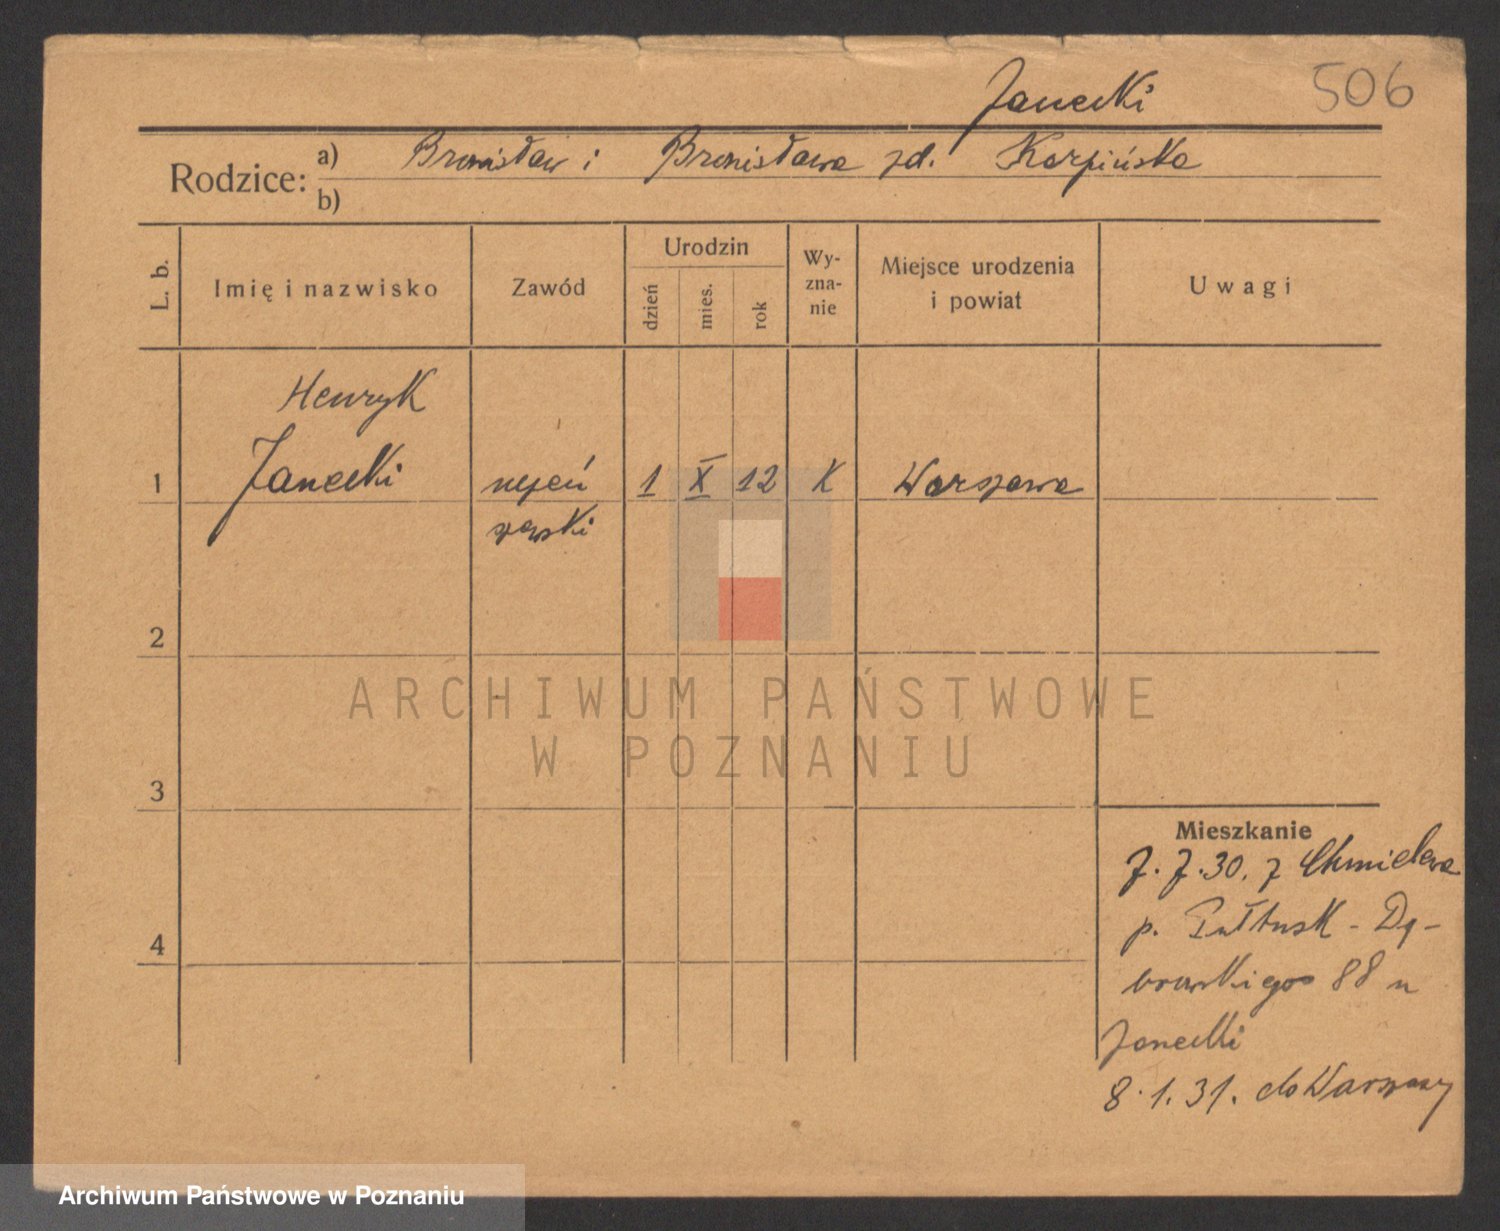 Janecki
506
Rodzice:
a) Bronisław i Bronisława zd. Karpińska
b)
L. b.
Imię i nazwisko
Zawód
Urodzin
dzień
mies.
rok
Wy-
zna-
nie
Miejsce urodzenia
i powiat
Uwagi
Henryk
1 Janecki
1 X 12 K Warszawa
2
ARCHIWUM PAŃSTWOWE
W POZNANIU
3
Mieszkanie
7.7.30. z Chmielewa
p. Pułtusk - Dą-
4
browskiego 88 u
Janecki
8.1.31. do Warszawy
Archiwum Państwowe w Poznaniu